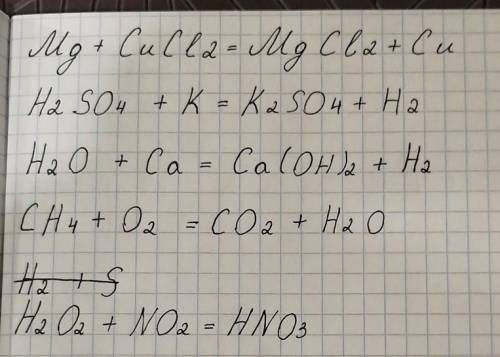 Mg + CuCl2 = MgCl2 + Cu
H2SO4 + K = K2SO4 + H2
H2O + Ca = Ca(OH)2 + H2
CH4 + O2 = CO2 + H2O
H2 + S
H2O2 + NO2 = HNO3